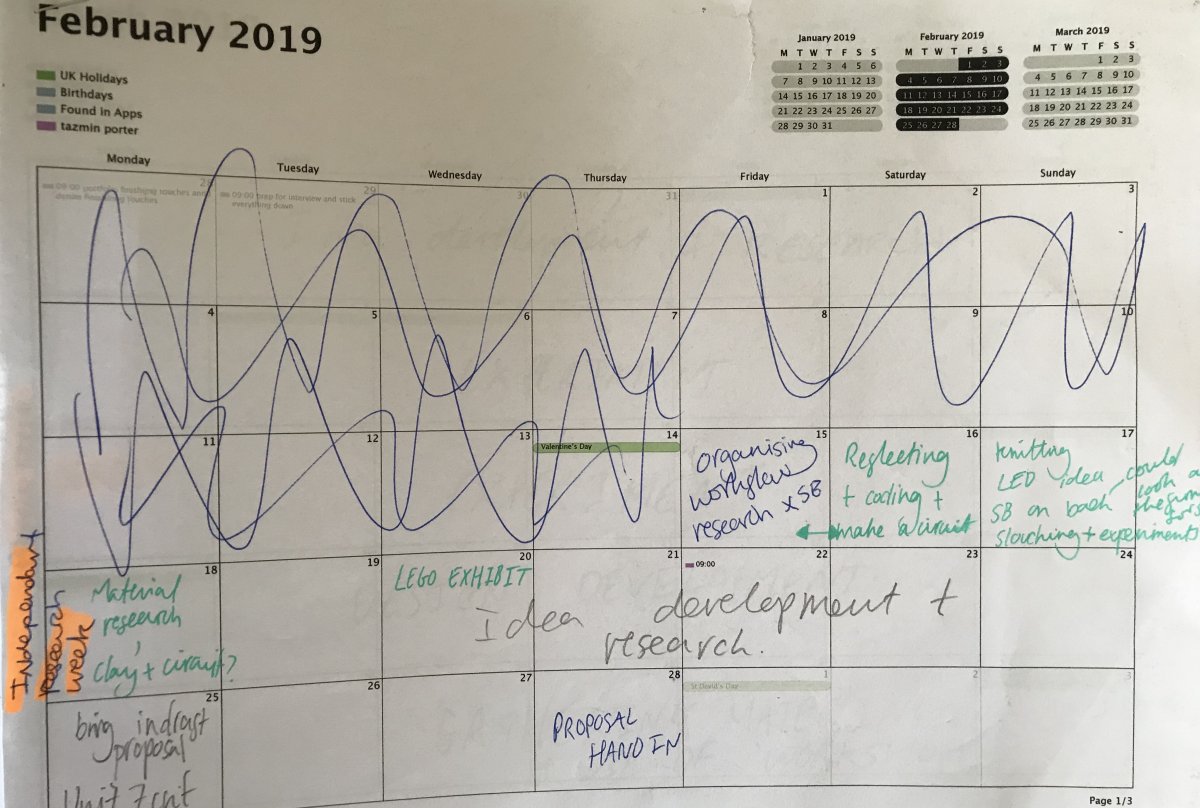 February 2019
UK Holidays
Birthdays
Found in Apps
tazmin porter
January 2019
M T W T F S S
1 2 3 4 5 6
7 8 9 10 11 12 13
14 15 16 17 18 19 20
21 22 23 24 25 26 27
28 29 30 31
February 2019
M T W T F S S
1 2 3
4 5 6 7 8 9 10
11 12 13 14 15 16 17
18 19 20 21 22 23 24
25 26 27 28
March 2019
M T W T F S S
1 2 3
4 5 6 7 8 9 10
11 12 13 14 15 16 17
18 19 20 21 22 23 24
25 26 27 28 29 30 31
Monday Tuesday Wednesday Thursday Friday Saturday Sunday
28 29 30 31 1 2 3
09:00 portfolio finishing touches and
touches
09:00 prep for interview and stick
everything down
4 5 6 7 8 9 10
11 12 13 14 15 16 17
Valentine's Day
organising
workflow
research x SB
Reflecting
+ coding +
make a circuit
knitting
LED idea, could
SB on back look a
slouching + experiments
18 19 20 21 22 23 24
Independant
research
week
Material
research
clay + circuit?
LEGO EXHIBIT
09:00
Idea development +
research.
25 26 27 28 1 2 3
bring in draft
proposal
Unit 7
PROPOSAL
HAND IN
St David's Day
Page 1/3